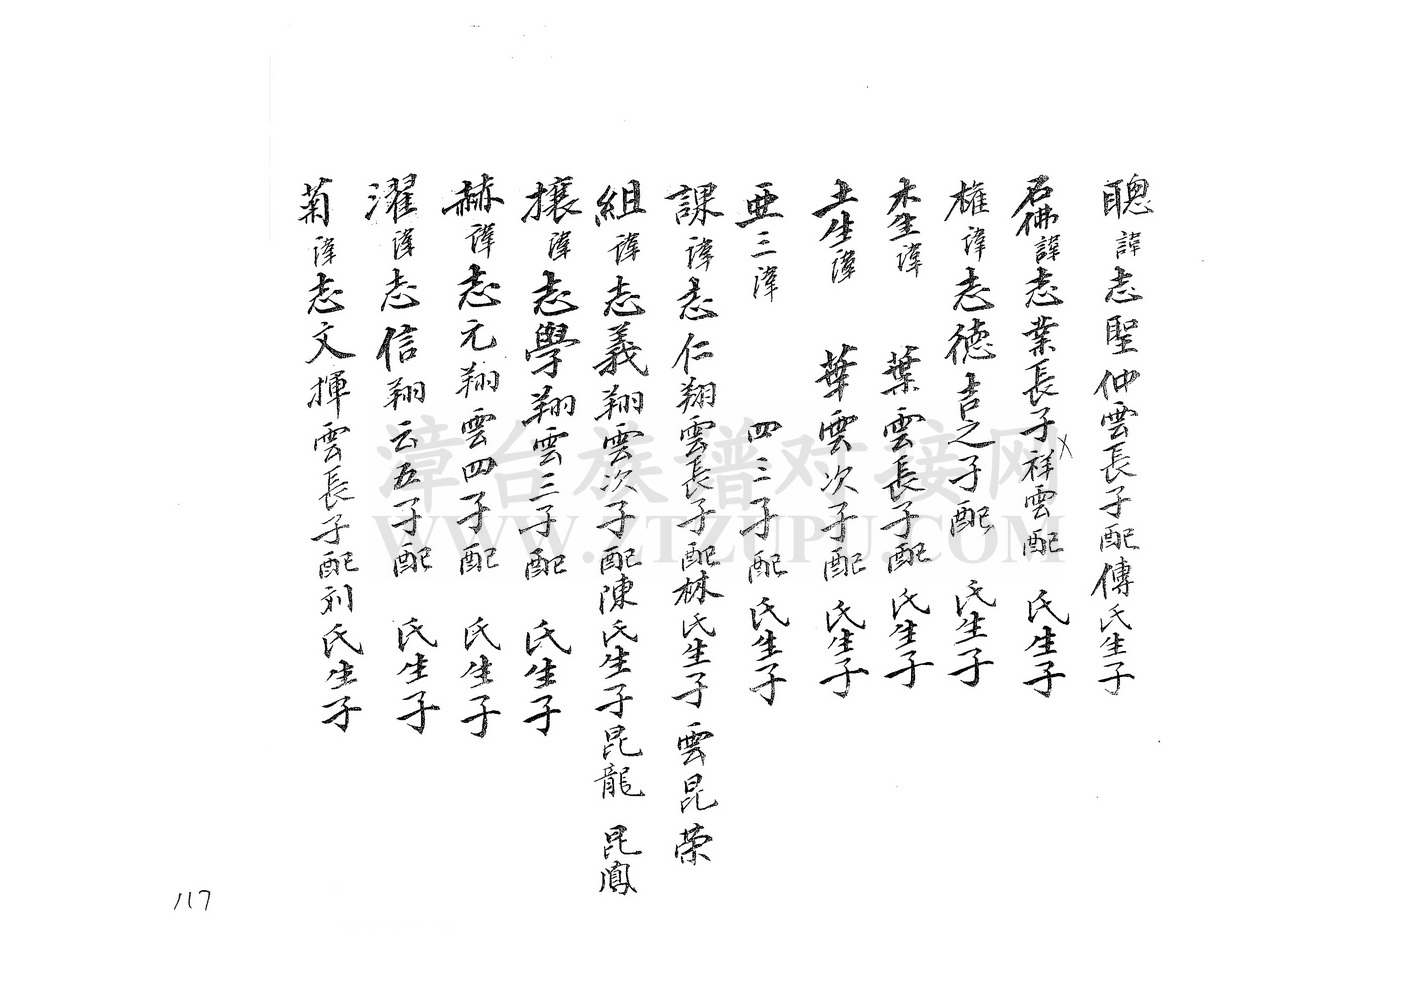 聰諱志聖仲雲長子配傳氏生子
石佛諱志業長子祥雲配 氏生子
雄諱志德吉之子配 氏生子
木生諱 葉雲長子配 氏生子
土生諱 華雲次子配 氏生子
亜三諱 四三子配 氏生子
課諱志仁翔雲長子配林氏生子 雲昆榮
組諱志義翔雲次子配陳氏生子昆龍 昆鳳
攘諱志學翔雲三子配 氏生子
赫諱志元翔雲四子配 氏生子
濯諱志信翔云五子配 氏生子
菊諱志文揮雲長子配刘氏生子
漳台族谱对接网
WWW.ZTZUPU.COM
117